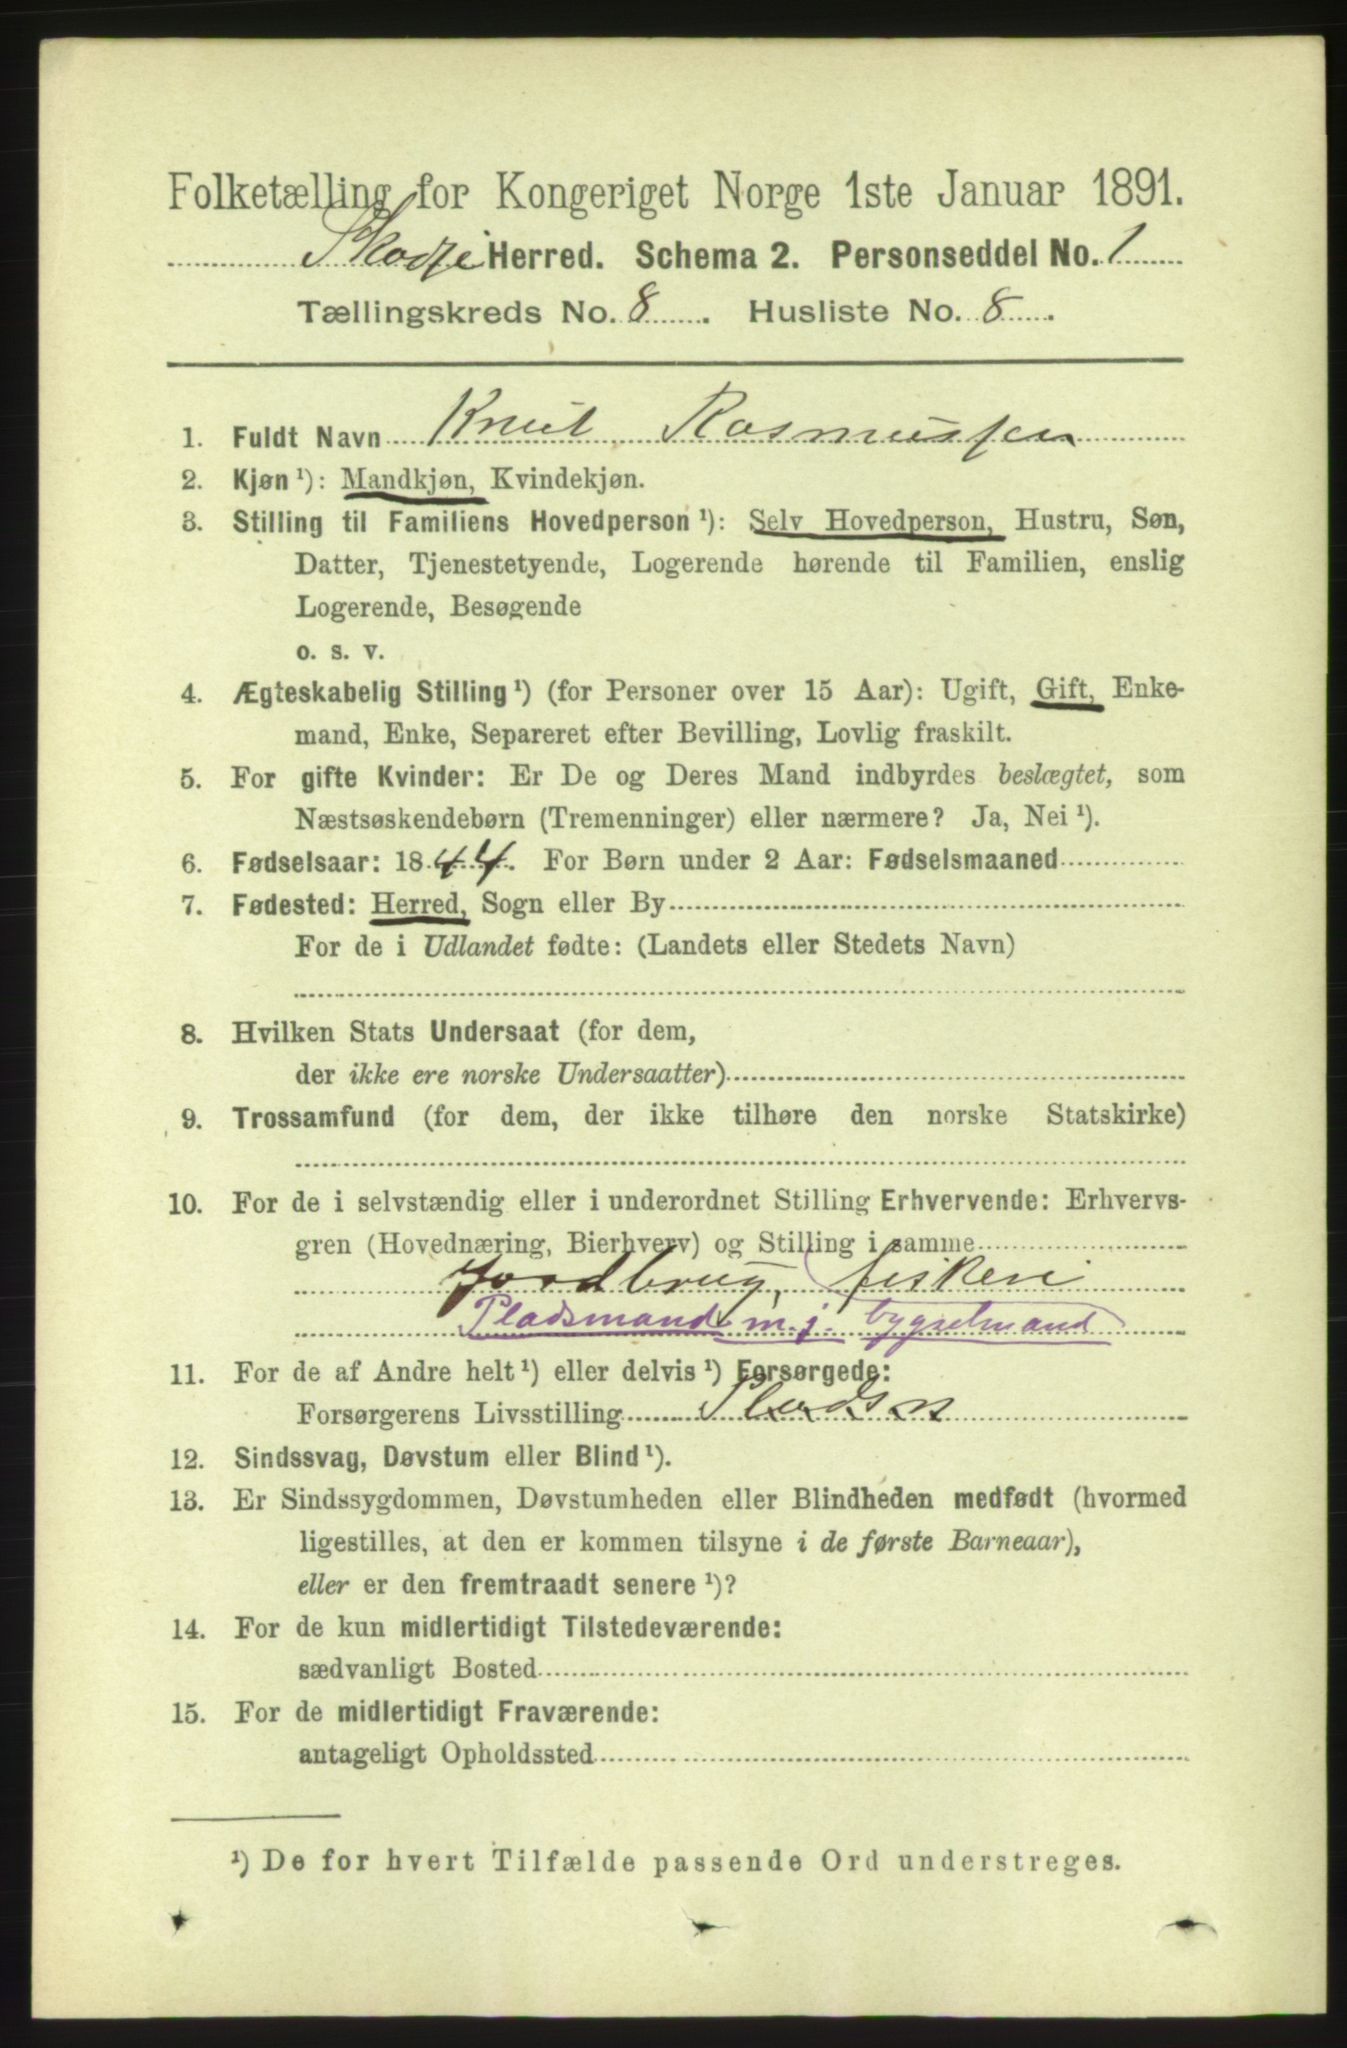 Folketælling for Kongeriget Norge 1ste Januar 1891.
Skodje Herred. Schema 2. Personseddel No. 1
Tællingskreds No. 8. Husliste No. 8.
1. Fuldt Navn Knut Rasmussen
2. Kjøn¹): Mandkjøn, Kvindekjøn.
3. Stilling til Familiens Hovedperson¹): Selv Hovedperson, Hustru, Søn,
Datter, Tjenestetyende, Logerende hørende til Familien, enslig
Logerende, Besøgende
o. s. v.
4. Ægteskabelig Stilling¹) (for Personer over 15 Aar): Ugift, Gift, Enke-
mand, Enke, Separeret efter Bevilling, Lovlig fraskilt.
5. For gifte Kvinder: Er De og Deres Mand indbyrdes beslægtet, som
Næstsøskendebørn (Tremenninger) eller nærmere? Ja, Nei¹).
6. Fødselsaar: 1844. For Børn under 2 Aar: Fødselsmaaned
7. Fødested: Herred, Sogn eller By
For de i Udlandet fødte: (Landets eller Stedets Navn)
8. Hvilken Stats Undersaat (for dem,
der ikke ere norske Undersaatter)
9. Trossamfund (for dem, der ikke tilhøre den norske Statskirke)
10. For de i selvstændig eller i underordnet Stilling Erhvervende: Erhvervs-
gren (Hovednæring, Bierhverv) og Stilling i samme
Jordbrug, fiskeri
Pladsmand m. j. bygselmand
11. For de af Andre helt¹) eller delvis¹) Forsørgede:
Forsørgerens Livsstilling
12. Sindssvag, Døvstum eller Blind¹).
13. Er Sindssygdommen, Døvstumheden eller Blindheden medfødt (hvormed
ligestilles, at den er kommen tilsyne i de første Barneaar),
eller er den fremtraadt senere¹)?
14. For de kun midlertidigt Tilstedeværende:
sædvanligt Bosted
15. For de midlertidigt Fraværende:
antageligt Opholdssted
¹) De for hvert Tilfælde passende Ord understreges.